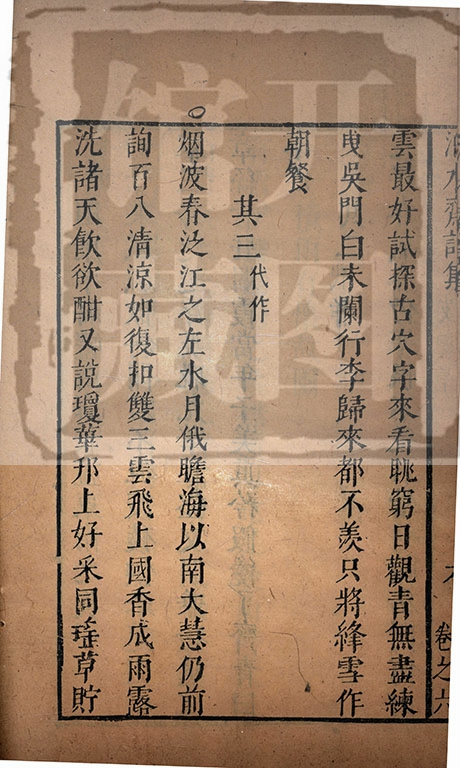 雲最好試探古穴字來看眺窮日觀青無盡練
曳吳門白未闌行李歸來都不羨只將絳雪作
朝餐
其三代作
烟波春泛江之左水月俄瞻海以南大慧仍前
詢百八清涼如復扣雙三雲飛上國香成雨露
洗諸天飲欲酣又說瓊華邦上好采同瑤草貯
卷之六